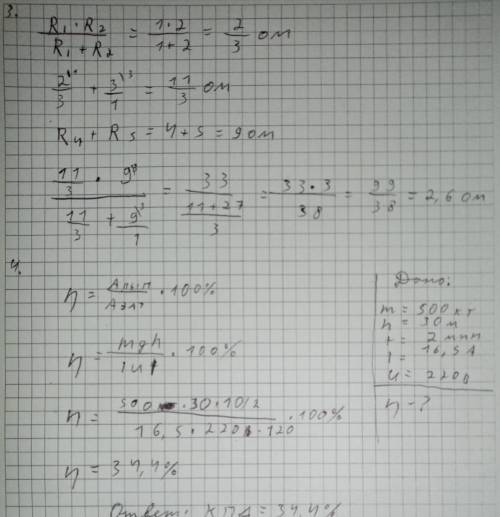 3.
R₁ · R₂ / R₁ + R₂ = 1 · 2 / 1 + 2 = 2/3 ом
2/3 + 3/1 \3 = 11/3 ом
R₄ + R₅ = 4 + 5 = 9 ом
11/3 · 9 / 11/3 + 9/1 \3 = 33 / 11 + 27 / 3 = 33 · 3 / 38 = 99/38 = 2,6 ом
4.
η = Aпып / Aэлт · 100%
η = mgh / IUt · 100%
η = 500 · 30 · 10 / 16,5 · 220 · 120 · 100%
η = 34,4%
Ответ: КПД = 34,4%
Дано:
m = 500 кг
h = 30 м
t = 2 мин
I = 16,5 А
U = 220 В
η - ?